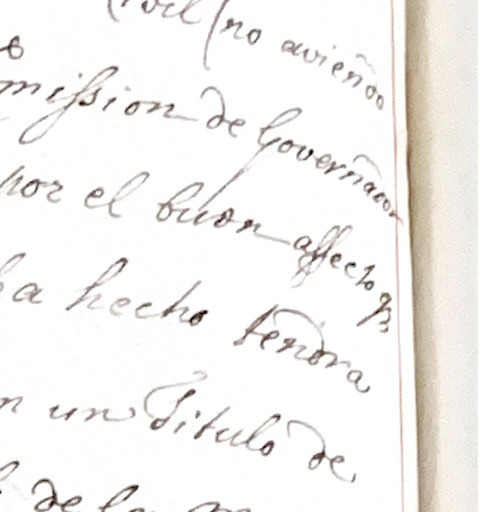 no aviendo
mission de Governador
por el buon affecto q
ha hecho tendra
un Titulo de
de la